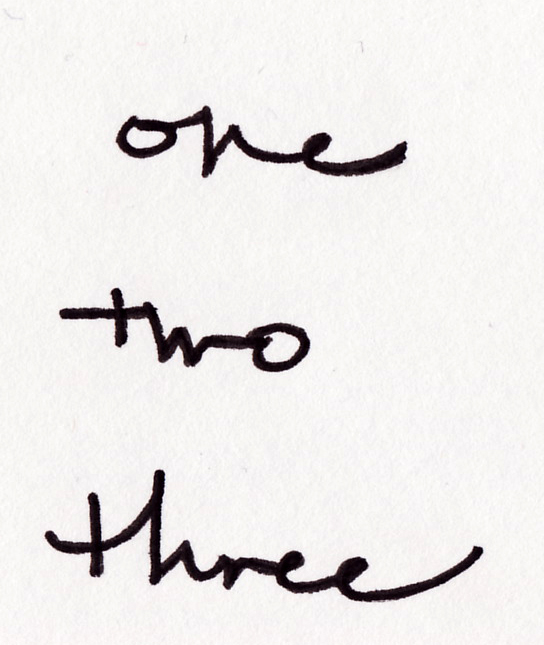 one
two
three